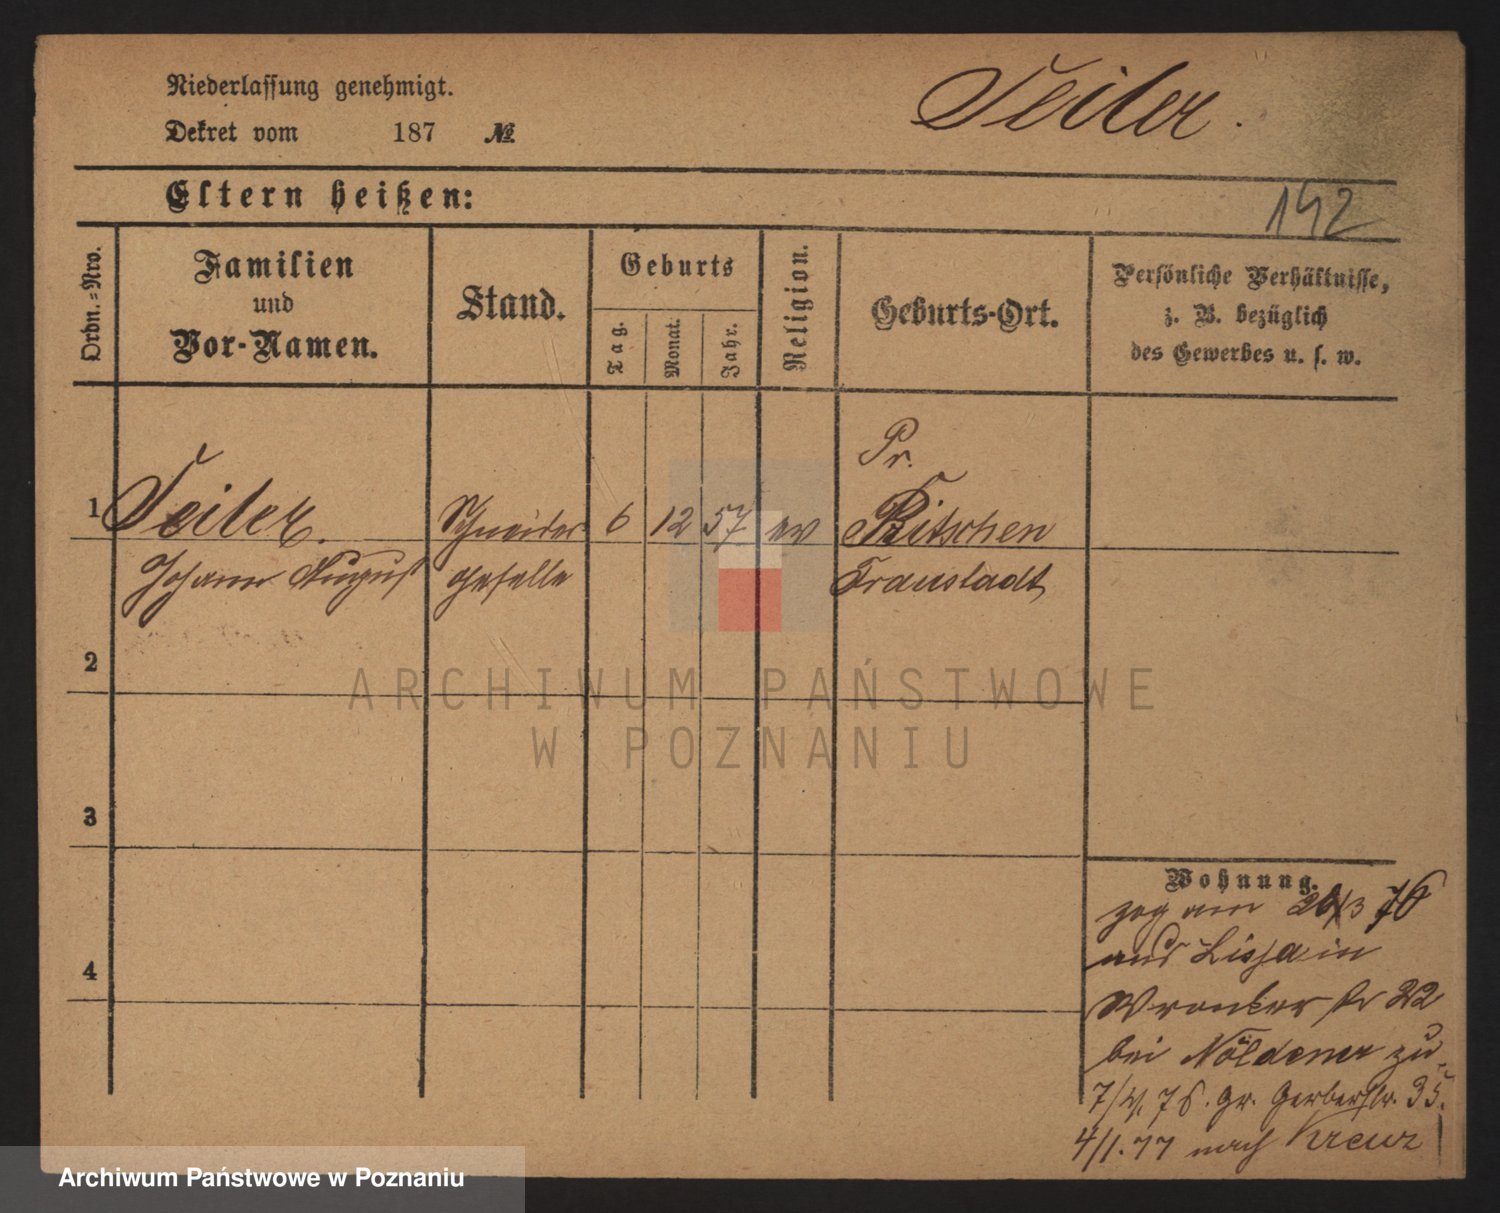 Niederlassung genehmigt.
Dekret vom 187 №
Seiler.
Eltern heißen:
142
Ordn.=Nro.
Familien
und
Vor-Namen.
Stand.
Geburts
Tag.
Monat.
Jahr.
Religion.
Geburts-Ort.
Persönliche Verhältnisse,
z. B. bezüglich
des Gewerbes u. s. w.
Pr.
1 Seiler. Schneider 6 12 57 ev Pritschen
Johann August geselle Fraustadt
2
ARCHIWUM PAŃSTWOWE
W POZNANIU
3
4
Wohnung.
zog am 26/3 76
aus Lissa in
Wronker str 22
bei Nöldener zu.
7/4. 76. gr. Gerberstr. 35.
4/1. 77 nach Kreuz
Archiwum Państwowe w Poznaniu